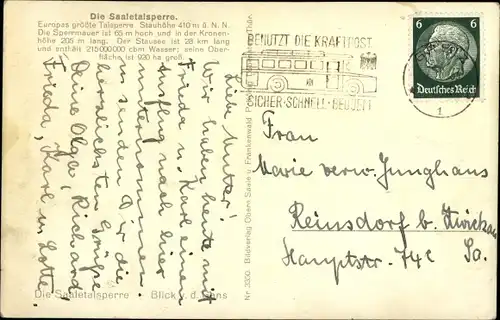 Die Saaletalsperre.
Europas größte Talsperre. Stauhöhe 410 m ü. N. N.
Die Sperrmauer ist 65 m hoch und in der Kronen-
höhe 205 m lang. Der Stausee ist 28 km lang
und enthält 215 000 000 cbm Wasser; seine Ober-
fläche ist 920 ha groß.
Liebe Mutter!
Wir haben heute mit
Frieda u. Karl einen
Ausflug nach hier
unternommen
u. senden Dir die
herzlichsten Grüße
Deine Olga, Richard
Frieda, Karl u. Lotte
Die Saaletalsperre Blick v. d.
Nr. 3300 Bildverlag Obern Saale u. Frankenwald
BENUTZT DIE KRAFTPOST
SICHER-SCHNELL-BEQUEM
6 6
Deutsches Reich
1
Frau
Marie verw. Junghans
Reinsdorf b. Zwickau
Hauptstr. 74c Sa.